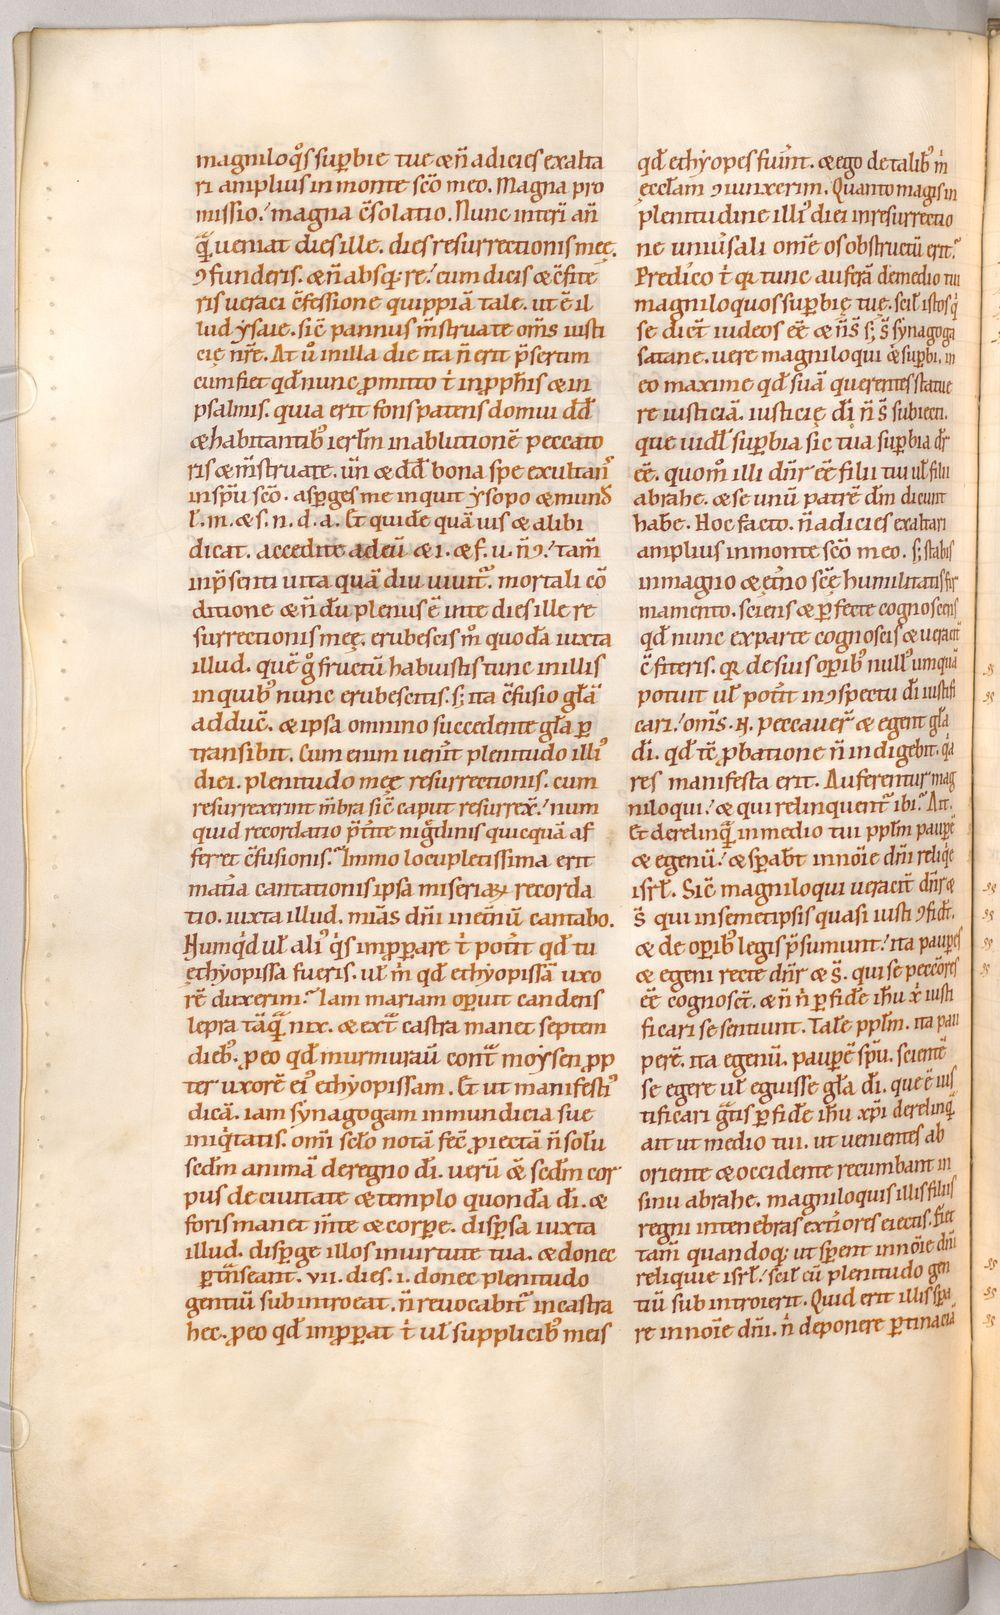 magniloq͛s sup̱bie tue ⁊ n̄ adicies exalta
ri amplius in monte sc̄o meo. Magna pro
missio. magna c̄solatio. Nunc interī an̄
q̄ ueniat dies ille. dies resurrectionis meę.
ꝯfunderis. ⁊ n̄ absq; re. cum dicis ⁊ c̄fite
ris ueraci c̄fessione quippiā tale. ut ē il
lud ẏsaie. sic̄ pannus m̄struate om̄s iusti
cię nr̄e. At ů in illa die ita n̄ erit p̄sertim
cum fiet qđ nunc ꝓmitto t̊ in ꝓph̄is ⁊ in
psalmis. quia erit fons patens domui dđ
⁊ habitantib; ierłm in ablutionē peccato
ris ⁊ m̄struate. un̄ ⁊ dđ bona spe exultan᷑
in sp̄u sc̄o. asp̱ges me inquit ẏsopo ⁊ munđ
ł. m. ⁊ s. n. d. a. Et quidē quā uis ⁊ alibi
dicat. accedite ad eū ⁊ i. ⁊ f. u. n̄ ꝯ. tam̄
in p̄senti uita quā diu uiuit᷑. mortali cō
ditione ⁊ n̄ dū plenus ē in te dies ille re
surrectionis meę. erubescis m̊ quodā iuxta
illud. quē g̊ fructū habuistis tunc in illis
in quib; nunc erubescitis. s; ita c̄fusio głā
adduc̄. ⁊ ipsa omnino succedente głā p̱
transibit. Cum enim uen̄it plenitudo illi᷒
diei. plenitudo meę resurrectionis. cum
resurrexerint m̄bra sic̄ caput resurrex̄. num
quid recordatio p̄t̄ite nig̊dinis quicquā af
ferret c̄fusionis. Immo locupletissima erit
mat̄ia cantationis ipsa miseriaꝝ recorda
tio. iuxta illud. mīas dn̄i in et̄nū cantabo.
Numq̇d uł ali᷒ q̇s imp̱perare t̊ pot̄it qđ tu
ethẏopissa fueris. uł m̊ qđ ethẏopissā uxo
rē duxerim. Iam mariam op̱uit candens
lepra tāq̄ nix. ⁊ extᷓ castra manet septem
dieb;. ꝓ eo qđ murmurau̅ contᷓ moẏsen ꝓp
ter uxorē ei᷒ ethẏopissam. Et ut manifesti᷒
dicā. iam sẏnagogam inmundicia sue
iniq̇tatis. om̄i sc̄lo notā fec̄ ꝓiectā n̄ solū
sedm̄ animā de regno đi. uerū ⁊ sedm̄ cor
pus de ciuitate ⁊ templo quondā đi. ⁊
foris manet m̄te ⁊ corp̱e. disp̱sa iuxta
illud. disp̱ge illos in uirtute tua. ⁊ donec
p̱tᷓnseant. vii. dies. i. donec plenitudo
gentiū subintroeat. n̄ reuocabit᷑ in castra
hec. ꝓ eo qđ imp̱perat t̊ uł supplicib; meis
qđ ethẏopes fuer̄int. ⁊ ego de talib; m̊
eccłam ꝯiunxerim. Quanto magis in
plenitudine illi᷒ diei in resurrectio
ne uniu̅sali omē os obstructū erit.
Predico t̊ qꝛ tunc auferā de medio tui
magniloquos sup̱bię tuę. scił istos q̇
se dic̄t iudeos ēē ⁊ n̄ s̄ s; s̄ sẏnagoga
satane. uere magniloqui ⁊ sup̱bi. in
eo maxime qđ suā querentes statue
re iusticiā. iusticię đi n̄ s̄ subiecti.
que uidł sup̱bia sic tua sup̱bia dr̄
ēē. quom̊ illi dn̄r ēē filii tui uł filii
abrahe. ⁊ se unū patrē dm̄ dicunt
habē. Hoc facto. n̄ adicies exaltari
amplius in monte sc̄o meo. s; stabis
in magno ⁊ et̄no sc̄ę humilitatis fir
mamento. sciens ⁊ p̱fecte cognoscens
qđ nunc ex parte cognoscis ⁊ ueracit̄
c̄fiteris. qꝛ de suis op̱ib; null᷒ umquā
potuit uł pot̄it in ꝯspectu đi iustifi
cari. om̄s. N. peccauer̄ ⁊ egent głā
đi. qđ tē ꝓbatione n̄ indigebit. q̇a
res manifesta erit. Auferentur mag
niloqui. ⁊ qui relinquent᷑ ibi. Ait.
Et derelinq̄ in medio tui ppłm paup̱ē
⁊ egenū. ⁊ sp̱abt̄ in noīe dn̄i reliq̇e
isrł. Sic̄ magniloqui ueracit̄ dn̄r ⁊
s̄ qui in semetipsis quasi iusti ꝯfidt̄.
⁊ de op̱ib; legis p̄sumunt. ita paup̱es
⁊ egeni recte dn̄r ⁊ s̄. qui se peccōres
ēē cognosct̄. ⁊ n̄ n̊ p̱ fidē ih̄u x̊ iusti
ficari se sentiunt. Talē ppłm. ita pau
perē. ita egenū. paup̱ē sp̄u. scientē
se egere uł eguisse głā đi. que ē ius
tificari gᷓtis p̱ fidē ih̄u xp̄i derelinq̄
ait ut medio tui. ut uenientes ab
oriente ⁊ occidente recumbant in
sinu abrahe. magniloquis illis filiis
regni in tenebras ext̄iores eiectis. Fiet
tam̄ quandoq; ut sp̱ent in noīe dn̄i
reliquie isrł. scił cū plenitudo gen
tiū subintroierit. Quid erit illis sp̱a
re in noīe dn̄i. n̊ deponere p̱tinaciā